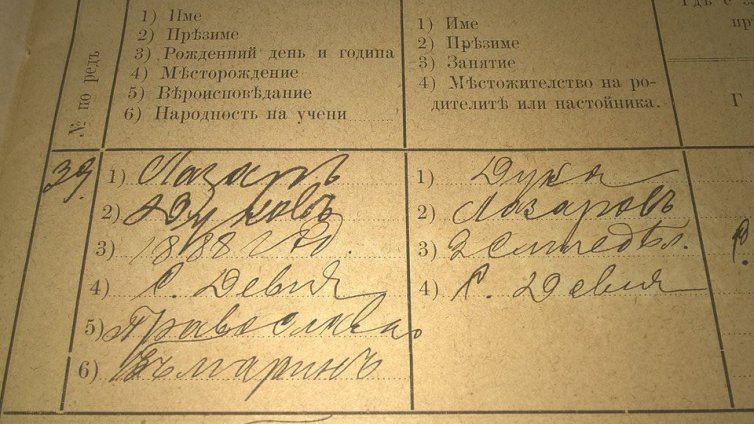 № по редъ
1) Име
2) Прѣзиме
3) Рожденний день и година
4) Мѣсторождение
5) Вѣроисповѣдание
6) Народность на учени
1) Име
2) Прѣзиме
3) Занятие
4) Мѣстожителство на ро-
дителитѣ или настойника.
Г
39.
1) Лазаръ
2) Дуковъ
3) 1888 год.
4) с. Девня
5) Православно
6) Българинъ
1) Дука
2) Лазаровъ
3) Земледѣл.
4) с. Девня